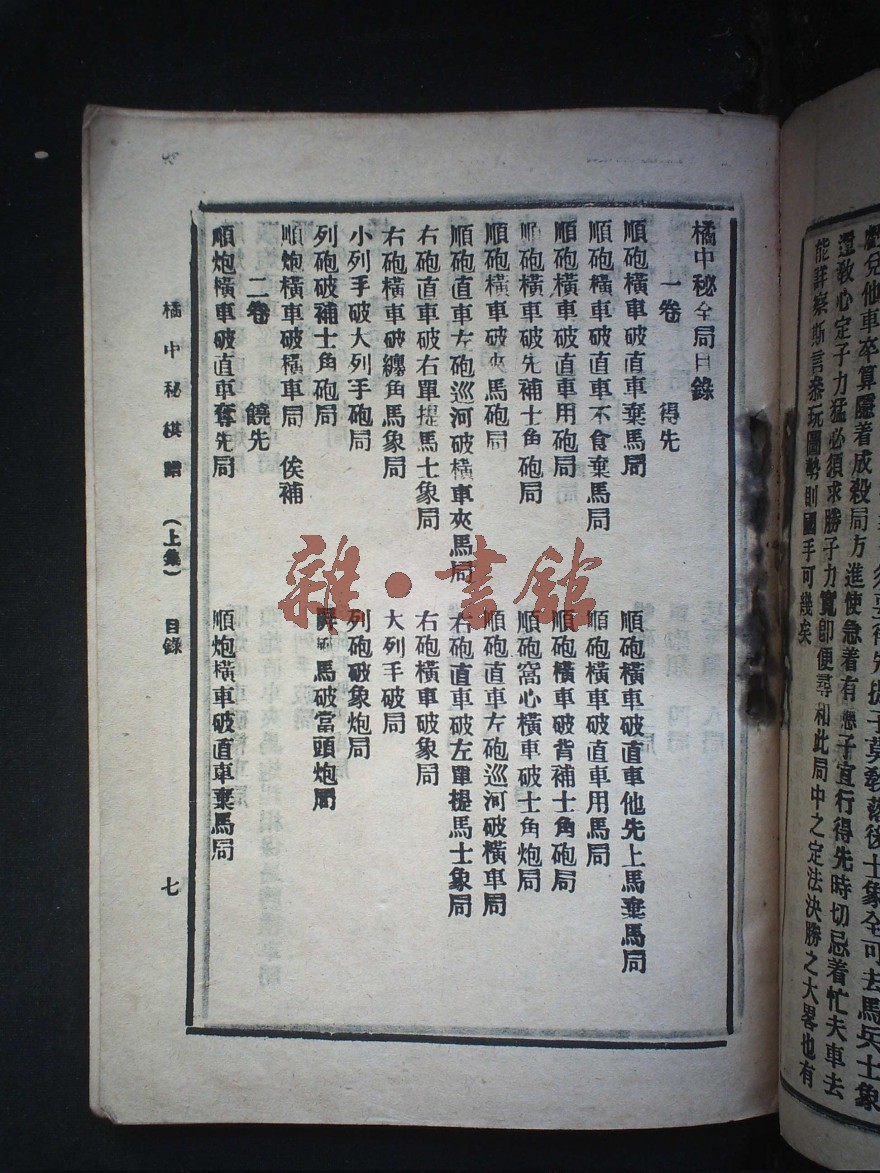 能詳察斯言叅玩圖勢則國手可幾矣
還敎心定子力猛必須求勝子力寬卽便尋和此局中之定法決勝之大畧也有
戲兌他車卒算隱着成殺局方進使急着有應子宜行得先時切忌着忙夫車去
橘中秘全局目錄
一卷 得先
順砲橫車破直車棄馬局 順砲橫車破直車他先上馬棄馬局
順砲橫車破直車不食棄馬局 順砲橫車破直車用馬局
順砲橫車破直車用砲局 順砲橫車破背補士角砲局
順砲橫車破先補士角砲局 順砲窩心橫車破士角炮局
順砲橫車破夾馬砲局 順砲直車左砲巡河破橫車局
順砲直車左砲巡河破橫車夾馬局 右砲直車破左單提馬士象局
右砲直車破右單提馬士象局 右砲橫車破象局
右砲橫車破纏角馬象局 大列手破局
小列手破大列手砲局 列砲破象炮局
列砲破補士角砲局 馬破當頭炮局
順炮橫車破橫車局 俟補
二卷 饒先
順炮橫車破直車奪先局 順炮橫車破直車棄馬局
橘中秘棋譜 (上集) 目錄 七
雜·書館